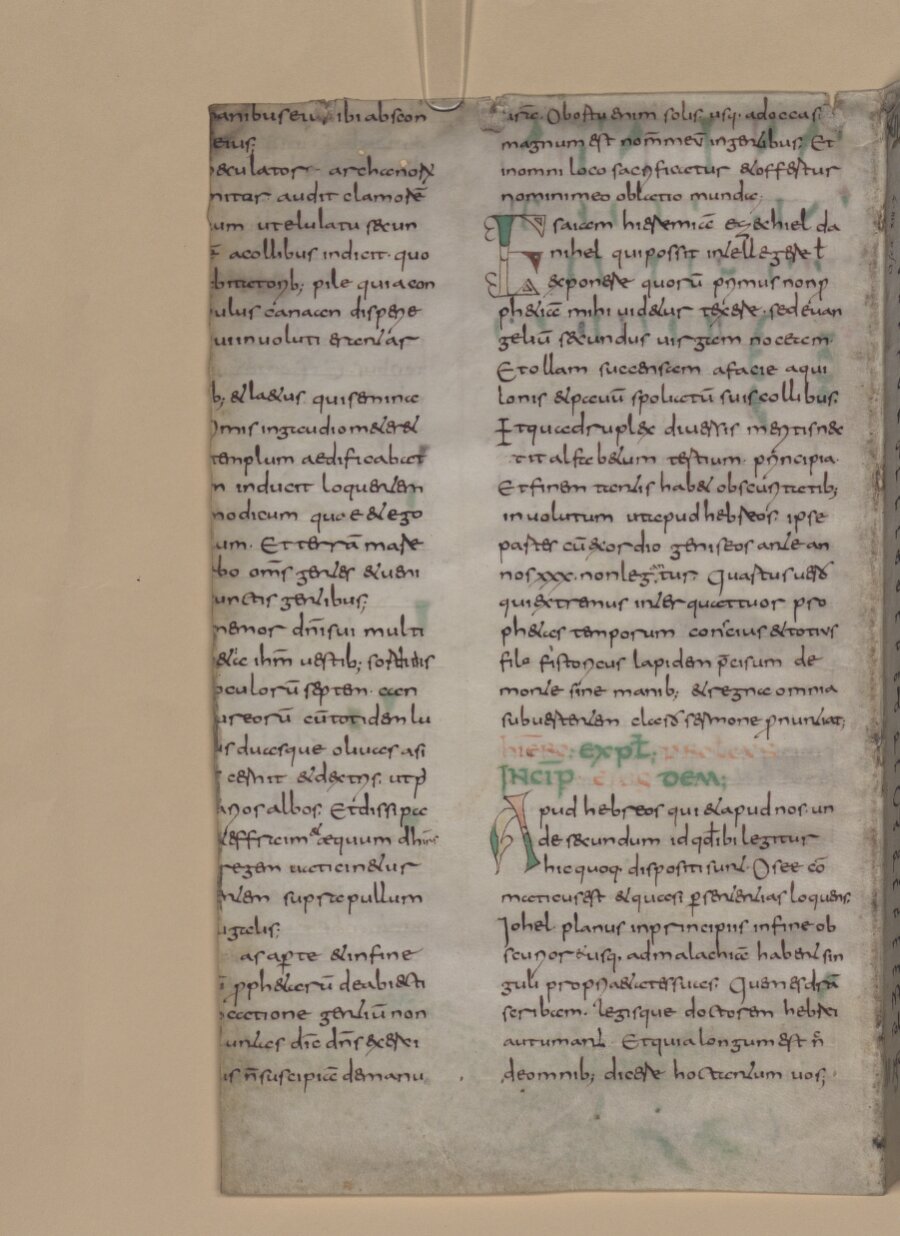 anibus eiu, ibi abscon
eius;
eculator archanorū
nitor audit clamorē
um ut elulatu secun
ē a collibus indicit quo
bitatorib; pile quia con
ulus canaan disperie
uī inuoluti erant ar
b; et laetus qui semina
imis in gaudio meteret
templum aedificabat
n inducit loquentem
modicum quae et ego
um. Et terrā mare
bo oms̄ gentes et ueni
unctis gentibus;
nemor dn̄i sui multi
etia ihm̄ uestib; sordidis
oculorū septem can
ureorū cū totidem lu
is ducesque oliuas asi
cernit et dextris. ut p̄
aros albos. Et dissipa
effraim et aequum dhier
regem uaticinetur
ntem supra pullum
ugalis;
as aperte et in fine
ī prophetarū de abiecti
ocatione gentiū non
untas dic̄ dn̄s exerci
us n̄ suscipiā de manu
isr̄. Ob ortu enim solis usq; ad occas̄
magnum est nom̄ meū in gentibus. Et
in omni loco sacrificatur et offertur
nomini meo oblatio munda;
Isaiam hieremiā ezechiel da
nihel qui possit intellegere t̄
exponere quorū primus non p
phetiā mihi uidetur texere. sed euan
geliū secundus uirgam nocem.
Et ollam succensam a facie aqui
lonis et pauū spoliatū suis collibus.
Et quadruplex diuersis mentis nec
tit alfabetum testium principia.
Et finem tantis habet obscuritatib;
inuolutum ut apud hebreos ipse
partes cū exordio geniseos ante an
nos xxx. non legantur. Quartus uero
qui extremus inter quattuor pro
phetas temporum conscius et totius
filo fistoricus lapidem p̄cisum de
monte sine manib; et regna omnia
subuertentem claro sermone pnuntiat;
hiero: expl̄; prologus
Incip̄ eius dem;
Apud hebreos qui et apud nos un
de secundum id qd̄ ibi legitur
hic quoq. dispositi sunt. Osee cō
maticus est et quasi per sententias loquens.
Iohel planus in principiis in fine ob
scurior & usq. ad malachiā habent sin
guli proprietates suas. Quem esdrā
scribam. legisque doctorem hebrei
autumant. Et quia longum est n̄
de omnib; dicere hoc tantum uos;